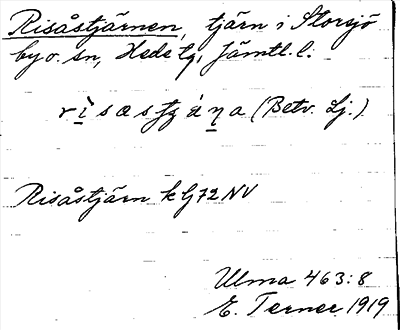 Risåstjärnen, tjärn i Storsjö
by o. sn, Hede tg, Jämtl. l.
(Betv. Lj.)
Risåstjärn k lj 72 NV
Ulma 463:8
E. Terner 1919